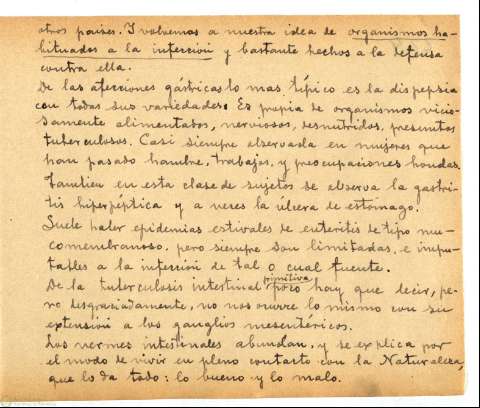 otros países. Y volvemos a nuestra idea de organismos ha-
bituados a la infección y bastante hechos a la defensa
contra ella.
De las afecciones gástricas lo mas típico es la dispepsia
con todas sus variedades. Es propia de organismos vicio-
samente alimentados, nerviosos, desnutridos, presuntos
tuberculosos. Casi siempre observada en mujeres que
han pasado hambre, trabajos, y preocupaciones hondas.
Tambien en esta clase de sujetos se observa la gastri-
tis hiperpéptica y a veces la úlcera de estómago.
Suele haber epidemias estivales de enteritis de tipo mu-
comembranoso, pero siempre son limitadas, e impu-
tables a la infección de tal o cual fuente.
De la tuberculosis intestinal primitiva poco hay que decir, pe-
ro desgraciadamente, no nos ocurre lo mismo con su
extensión a los ganglios mesentéricos.
Los vermes intestinales abundan, y se explica por
el modo de vivir en pleno contacto con la Naturaleza,
que lo da todo: lo bueno y lo malo.